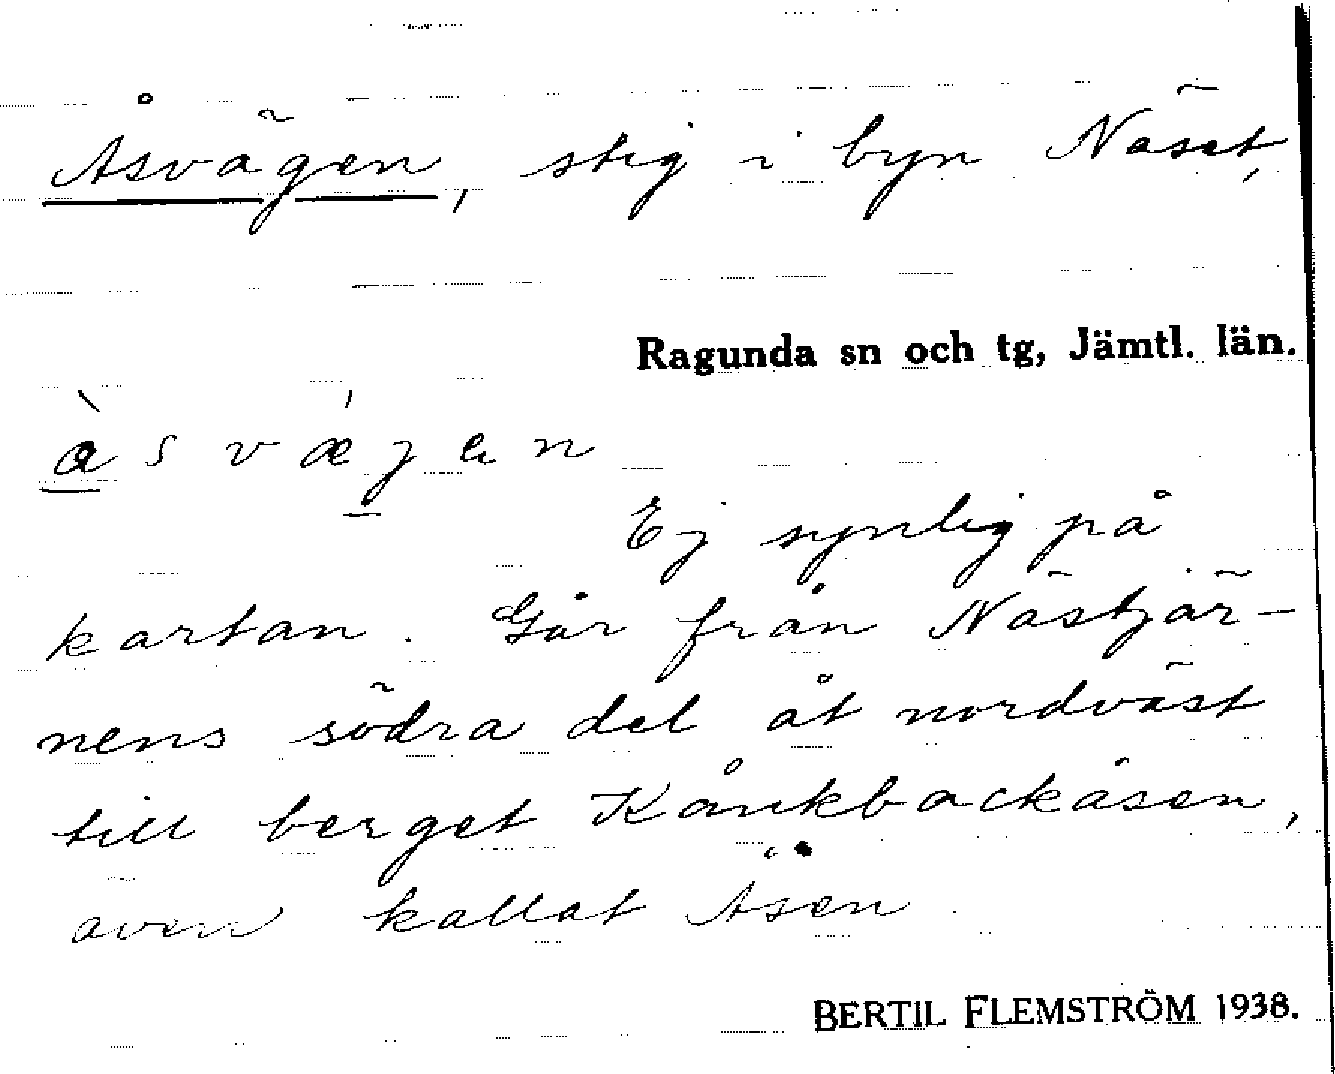 Åsvägen, stig i byn Näset,
Ragunda sn och tg, Jämtl. län.
å̀svǽjen
Ej synlig på
kartan. Går från Nästjär-
nens södra del åt nordväst
till berget Kånkbackåsen,
även kallat Åsen.
BERTIL FLEMSTRÖM 1938.